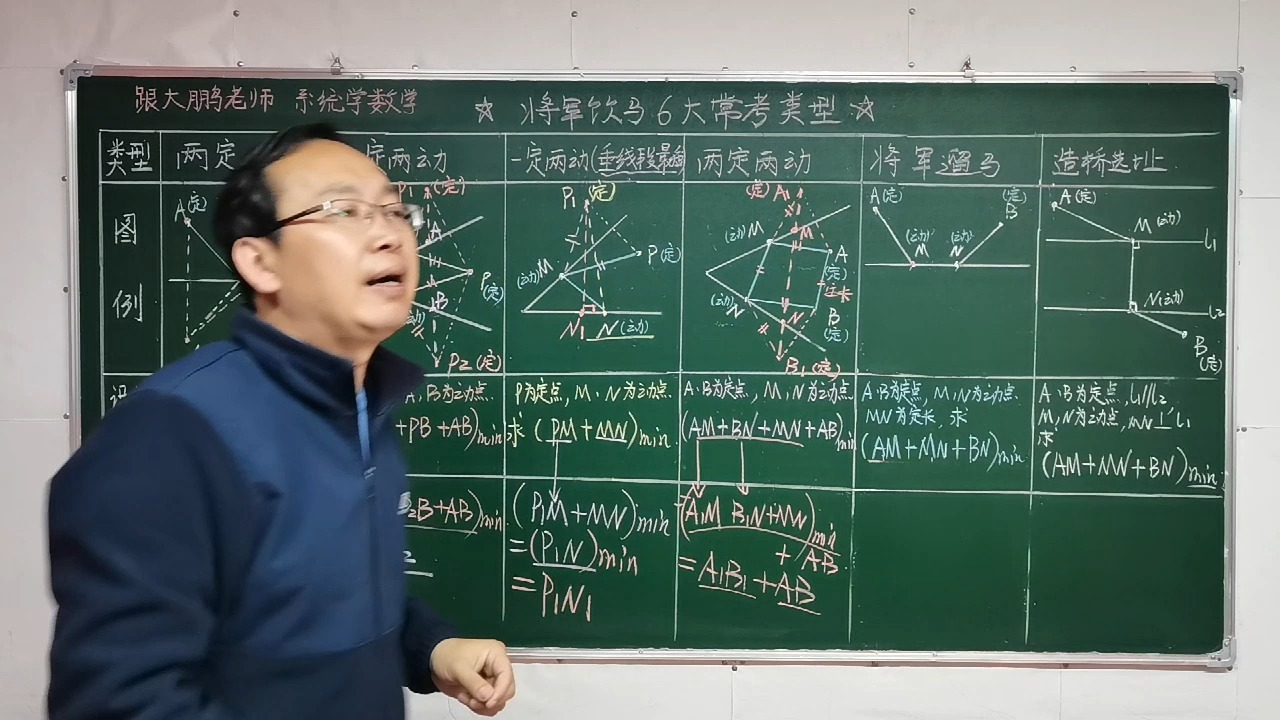 跟大鹏老师 系统学数学
☆ 将军饮马6大常考类型 ☆
类型
两定
定两动
一定两动(垂线段最短)
两定两动
将军遛马
造桥选址
图
例
A(定)
P1(定)
A
B
P
(定)
P2(定)
P1(定)
(动)M
P(定)
N1
N(动)
(定)A1
(动)M
M
A
(定)
定长
(动)
N
N
B
(定)
B1(定)
A(定)
(定)
B
(动)
M
(动)
N
A(定)
M(动)
l1
N(动)
l2
B
(定)
A,B为动点
+PB+AB)min
P为定点,M、N为动点.
求(PM+MN)min
A、B为定点,M、N为动点
(AM+BN+MN+AB)min
A、B为定点,M、N为动点.
MN为定长,求
(AM+MN+BN)min
A、B为定点,l1//l2
M,N为动点,MN⊥l1
求
(AM+MN+BN)min
2B+AB)min
(P1M+MN)min
=(P1N)min
=P1N1
(A1M B1N+MN)min
+AB
=A1B1+AB